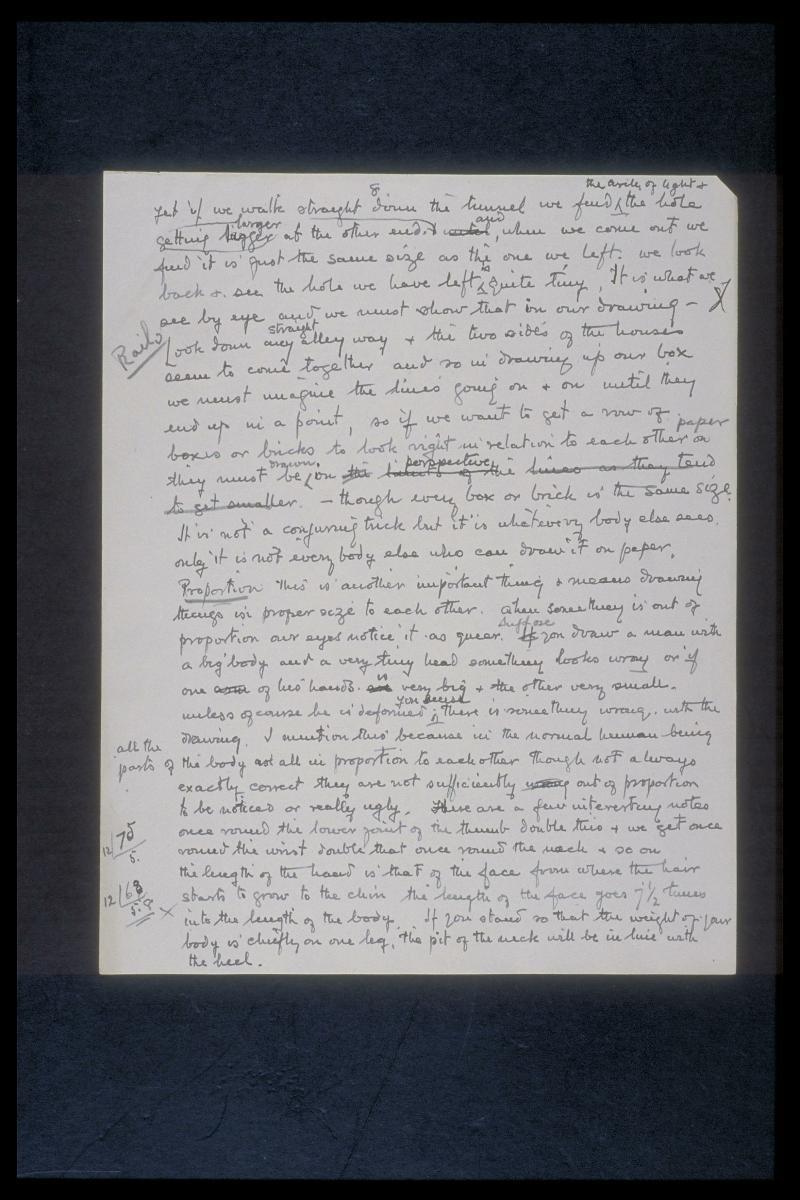 8
the circle of light &
yet if we walk straight down the tunnel we find ^ the hole
getting bigger larger at the other end & and, when we come out we
find it is just the same size as the one we left. we look
back & see the hole we have left is ^ quite tiny, It is what we
see by eye and we must show that in our drawing –
Rails
Look down any straight alley way & the two sides of the houses
seem to come together and so in drawing up our box
we must imagine the lines going on & on until they
end up in a point, so if we want to get a row of paper
boxes or bricks to look right in relation to each other on
they must be ^ drawn. on the perspective of the lines as they tend
to get smaller. – though every box or brick is the same size.
It is not a conjuring trick but it is what every body else sees.
only it is not every body else who can draw it on paper.
Proportion This is another important thing & means drawing
things in proper size to each other. When something is out of
proportion our eyes notice it as queer. If Suppose you draw a man with
a big body and a very tiny head something looks wrong or if
one of his hands is very big & the other very small.
unless of course he is deformed ^ you there is something wrong. with the
drawing. I mention this because in the normal human being
all the
parts of the body all in proportion to each other though not always
exactly correct they are not sufficiently wrong out of proportion
to be noticed or really ugly. There are a few interesting notes
once round the lower joint of the thumb double this & we get once
round the wrist double that once round the neck & so on
12/75
5.
the length of the hand is that of the face from where the hair
starts to grow to the chin the length of the face goes 7½ times
12/68
5.8
x
into the length of the body. If you stand so that the weight of your
body is chiefly on one leg, the pit of the neck will be in line with
the heel.